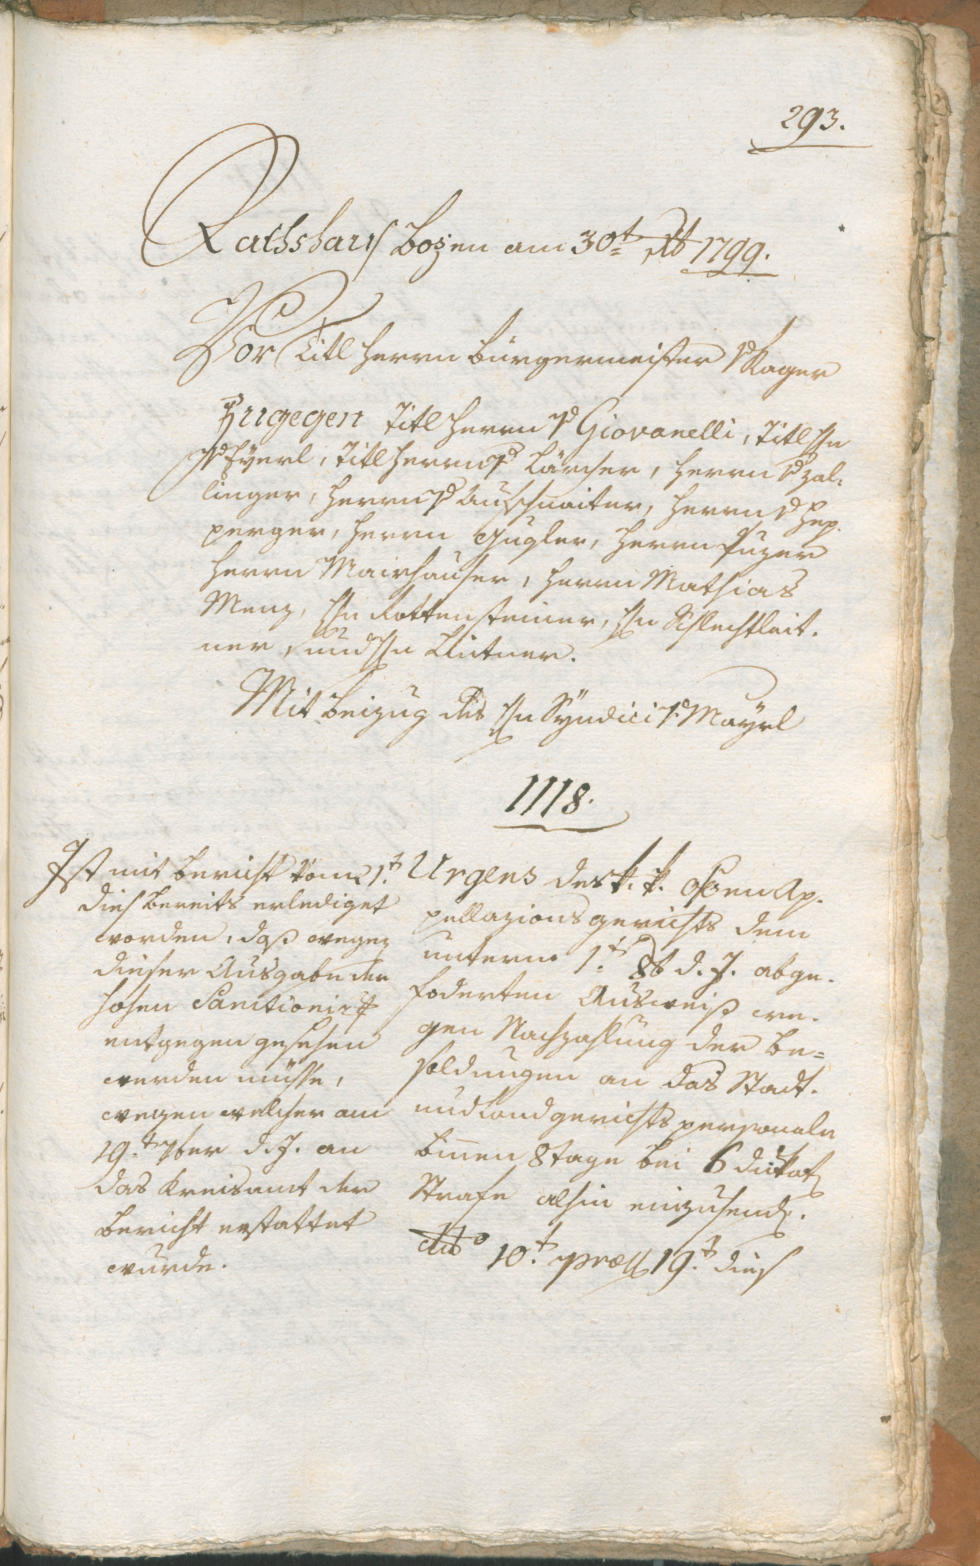 293.
Rathshauß Bozen am 30t 8b 1799.
Vor Titl Herrn Bürgermeister v Kager
Zugegen Titl Herrn v Giovanelli, Titl Hn
v Eyerl, Titl Herrn v Lärcher, Herrn v Zal-
linger, Herrn v Aufschnaiter, Herrn v Hep-
perger, Herrn Gugler, Herrn Puzer
Herrn Mairhauser, Herrn Mathias
Menz, Hn Rottensteiner, Hn Schlechtleit-
ner, und Hn
Mit Beizug des Hn Syndici v. Mayrl
1118.
Ist mit Bericht vom 21.t
dieß bereits erlediget
worden, daß wegen
dieser Ausgabe der
hohen
entgegen gesehen
werden müsse,
wegen welcher am
19.t 7ber d. J. an
das Kreisamt der
Bericht erstattet
wurde.
Urgens des k. k. Ap-
pellazionsgerichts dem
unterm 1.t 8b d. J. abge-
foderten Ausweiß we-
gen Nachzahlung der Be-
soldungen an das Stadt-
und Landgerichtspersonale
binnen 8 Tage bei 6 Dukat
Strafe alhin einzusend.
dto 10.t præs 19.t dieß